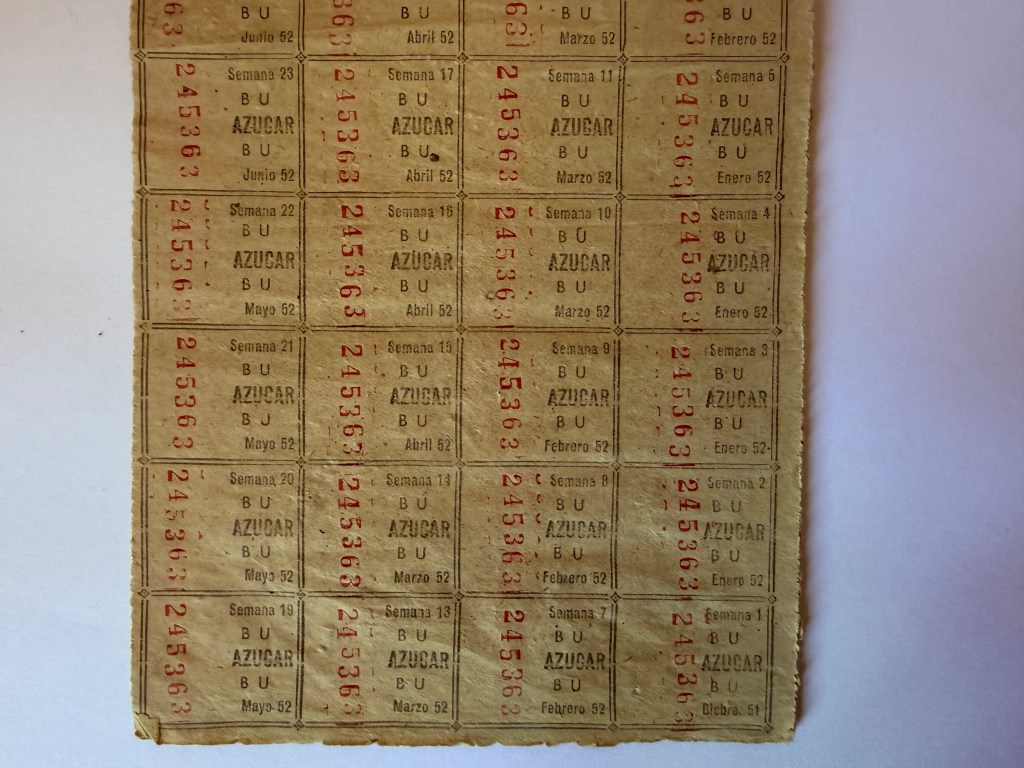 63
B U
Junio 52
363
B U
Abril 52
363
B U
Marzo 52
363
B U
Febrero 52
245363
Semana 23
B U
AZUCAR
B U
Junio 52
245363
Semana 17
B U
AZUCAR
B U
Abril 52
245363
Semana 11
B U
AZUCAR
B U
Marzo 52
245363
Semana 5
B U
AZUCAR
B U
Enero 52
245363
Semana 22
B U
AZUCAR
B U
Mayo 52
245363
Semana 16
B U
AZUCAR
B U
Abril 52
245363
Semana 10
B U
AZUCAR
B U
Marzo 52
245363
Semana 4
B U
AZUCAR
B U
Enero 52
245363
Semana 21
B U
AZUCAR
B U
Mayo 52
245363
Semana 15
B U
AZUCAR
B U
Abril 52
245363
Semana 9
B U
AZUCAR
B U
Febrero 52
245363
Semana 3
B U
AZUCAR
B U
Enero 52
245363
Semana 20
B U
AZUCAR
B U
Mayo 52
245363
Semana 14
B U
AZUCAR
B U
Marzo 52
245363
Semana 8
B U
AZUCAR
B U
Febrero 52
245363
Semana 2
B U
AZUCAR
B U
Enero 52
245363
Semana 19
B U
AZUCAR
B U
Mayo 52
245363
Semana 13
B U
AZUCAR
B U
Marzo 52
245363
Semana 7
B U
AZUCAR
B U
Febrero 52
245363
Semana 1
B U
AZUCAR
B U
Dicbre. 51